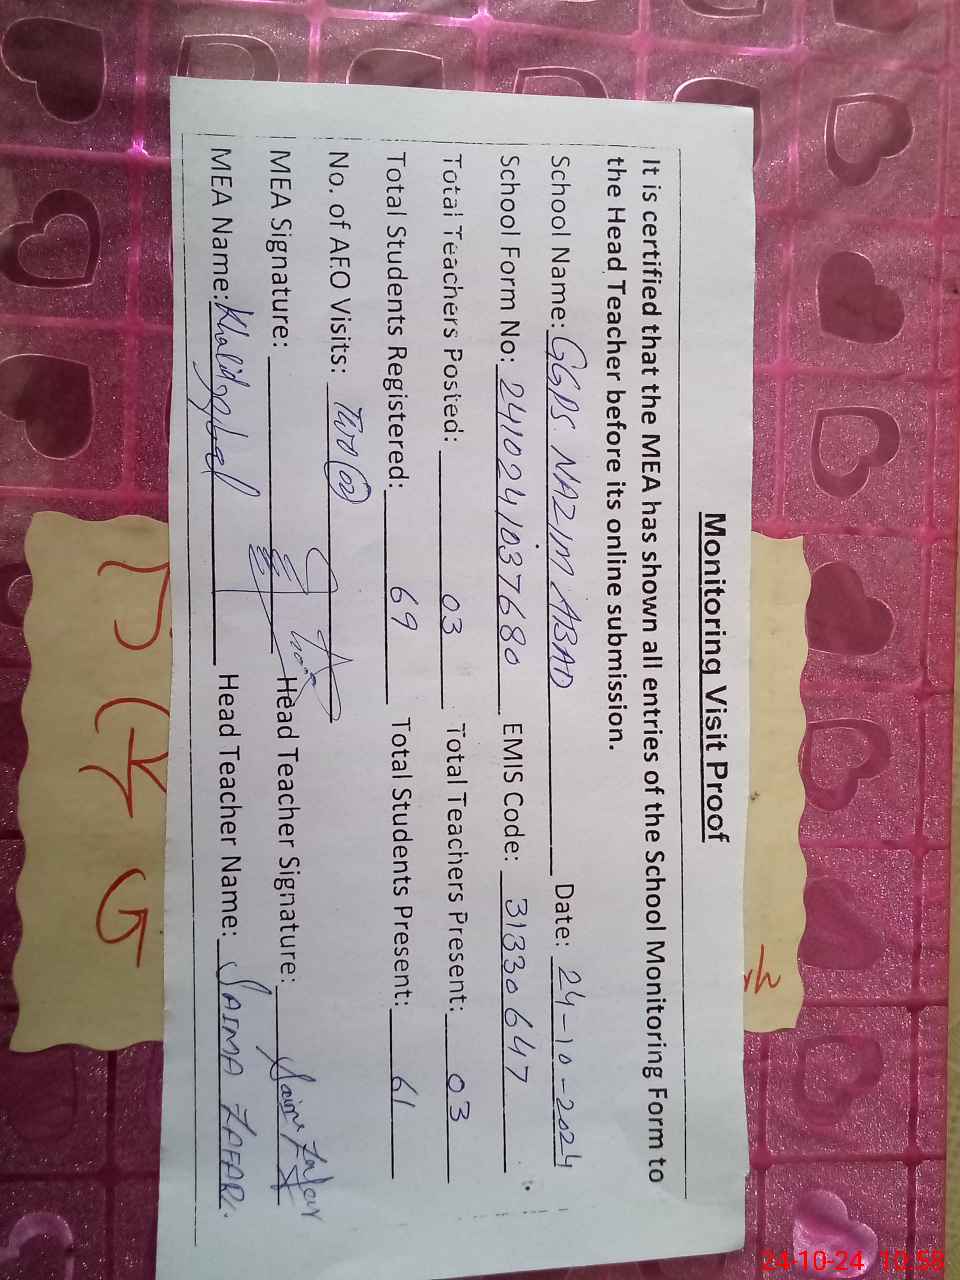 Monitoring Visit Proof
It is certified that the MEA has shown all entries of the School Monitoring Form to
the Head Teacher before its online submission.
School Name: GGPS. NAZIM ABAD Date: 24-10-2024
School Form No: 2410241037680 EMIS Code: 31330647
Total Teachers Posted: 03 Total Teachers Present: 03
Total Students Registered: 69 Total Students Present: 61
No. of AEO Visits: Two (02)
MEA Signature: Head Teacher Signature: Saima Zafar
MEA Name: Khalid Iqbal Head Teacher Name: SAIMA ZAFAR.
24-10-24 10:58